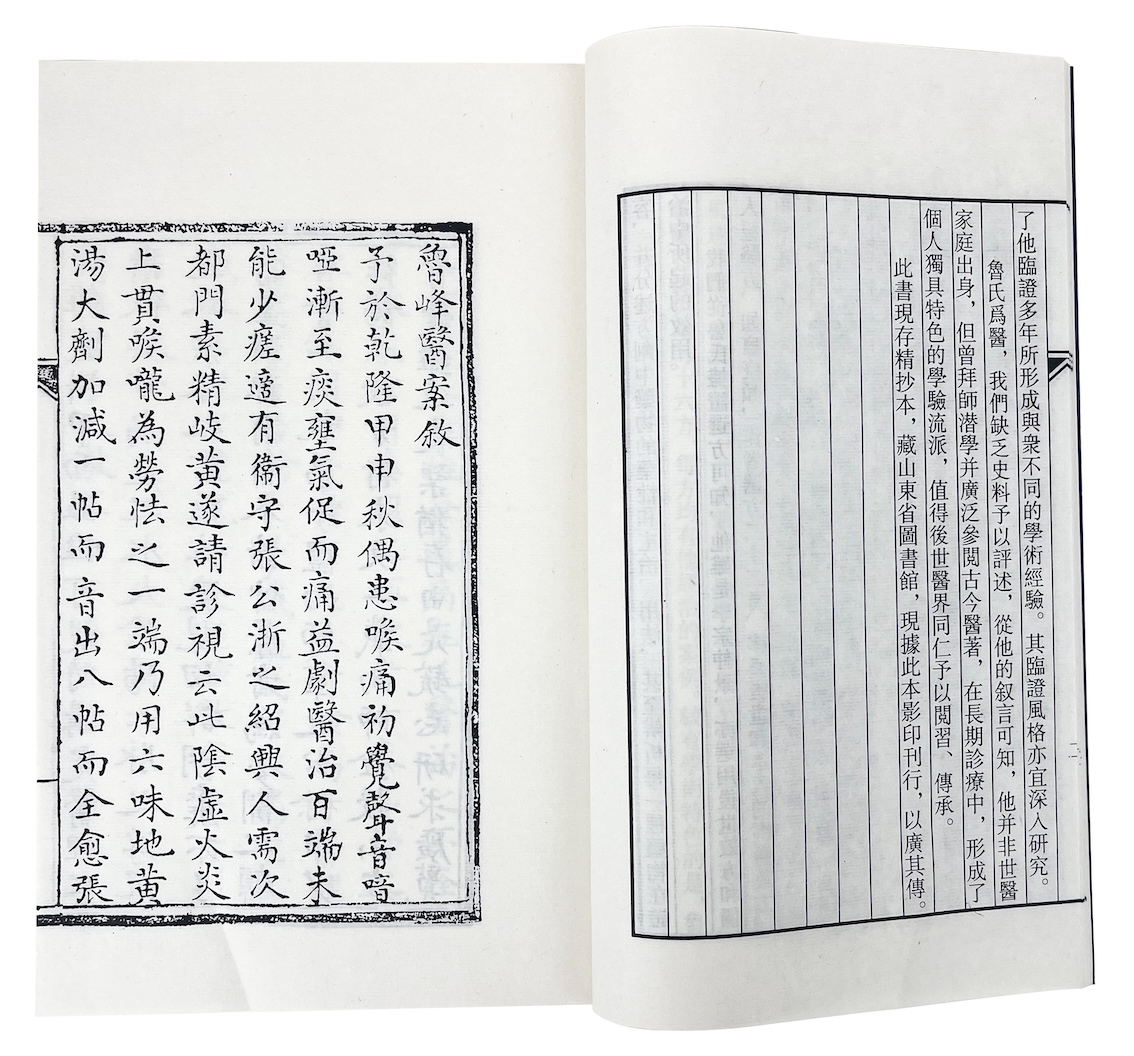 了他臨證多年所形成與衆不同的學術經驗。其臨證風格亦宜深入研究。
魯氏爲醫，我們缺乏史料予以評述，從他的叙言可知，他并非世醫
家庭出身，但曾拜師潜學并廣泛參閲古今醫著，在長期診療中，形成了
個人獨具特色的學驗流派，值得後世醫界同仁予以閲習、傳承。
此書現存精抄本，藏山東省圖書館，現據此本影印刊行，以廣其傳。
二
魯峰醫案敘
予於乾隆甲申秋偶患喉痛初覺聲音喑
啞漸至痰壅氣促而痛益劇醫治百端未
能少瘥適有衞守張公浙之紹興人需次
都門素精岐黃遂請診視云此陰虛火炎
上貫喉嚨為勞怯之一端乃用六味地黃
湯大劑加減一帖而音出八帖而全愈張